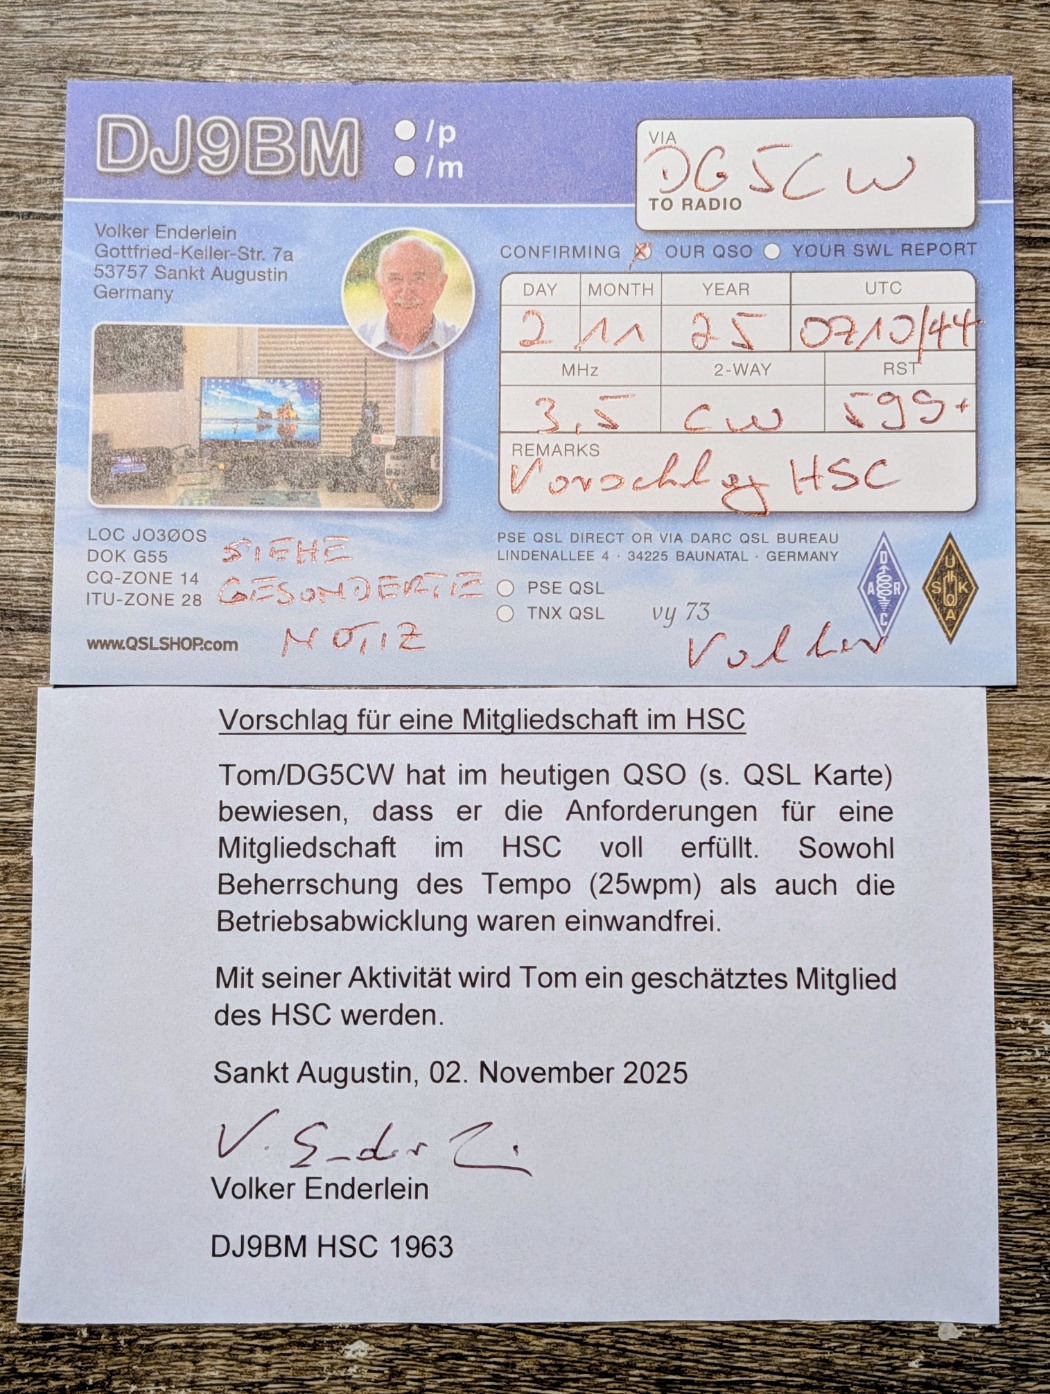 DJ9BM
/p
/m
VIA
DG5CW
TO RADIO
Volker Enderlein
Gottfried-Keller-Str. 7a
53757 Sankt Augustin
Germany
CONFIRMING OUR QSO YOUR SWL REPORT
DAY MONTH YEAR UTC
2 11 25 0710/44
MHz 2-WAY RST
3,5 CW 599+
REMARKS
Vorschlag HSC
LOC JO3ØOS
DOK G55
CQ-ZONE 14
ITU-ZONE 28
SIEHE
GESONDERTE
NOTIZ
www.QSLSHOP.com
PSE QSL DIRECT OR VIA DARC QSL BUREAU
LINDENALLEE 4 · 34225 BAUNATAL · GERMANY
PSE QSL
TNX QSL
vy 73
Volker
DARC
USKA
Vorschlag für eine Mitgliedschaft im HSC
Tom/DG5CW hat im heutigen QSO (s. QSL Karte)
bewiesen, dass er die Anforderungen für eine
Mitgliedschaft im HSC voll erfüllt. Sowohl
Beherrschung des Tempo (25wpm) als auch die
Betriebsabwicklung waren einwandfrei.
Mit seiner Aktivität wird Tom ein geschätztes Mitglied
des HSC werden.
Sankt Augustin, 02. November 2025
V. Enderlein
Volker Enderlein
DJ9BM HSC 1963